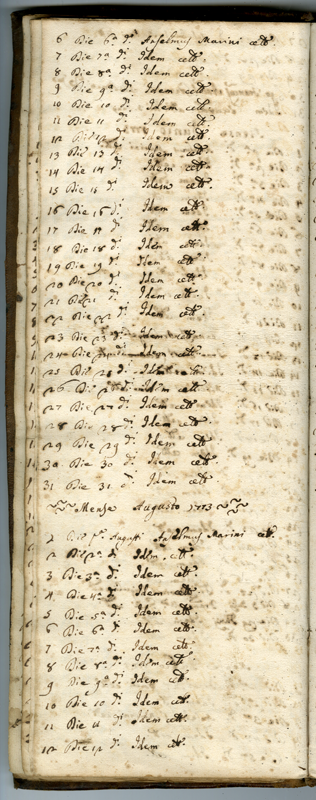 6 Die 6.ª d.i Anselmus Marini cett.
7 Die 7.ª d.i Idem cett.
8 Die 8.ª d.i Idem cett.
9 Die 9.ª d.i Idem cett.
10 Die 10 d.i Idem cett.
11 Die 11 d.i Idem cett.
12 Die 12 d.i Idem cett.
13 Die 13 d.i Idem cett.
14 Die 14 d.i Idem cett.
15 Die 15 d.i Idem cett.
16 Die 16 d.i Idem cett.
17 Die 17 d.i Idem cett.
18 Die 18 d.i Idem cett.
19 Die 19 d.i Idem cett.
20 Die 20 d.i Idem cett.
21 Die 21 d.i Idem cett.
22 Die 22 d.i Idem cett.
23 Die 23 d.i Idem cett.
24 Die Idem cett.
25 Die 25 d.i Idem cett.
26 Die 26 d.i Idem cett.
27 Die 27 d.i Idem cett.
28 Die 28 d.i Idem cett.
29 Die 29 d.i Idem cett.
30 Die 30 d.i Idem cett.
31 Die 31 d.i Idem cett.
Mense Augusto 1773
1 Die p.ª Augusti Anselmus Marini cett.
2 Die 2.ª d.i Idem cett.
3 Die 3.ª d.i Idem cett.
4 Die 4.ª d.i Idem cett.
5 Die 5.ª d.i Idem cett.
6 Die 6.ª d.i Idem cett.
7 Die 7.ª d.i Idem cett.
8 Die 8.ª d.i Idem cett.
9 Die 9.ª d.i Idem cett.
10 Die 10 d.i Idem cett.
11 Die 11 d.i Idem cett.
12 Die 12 d.i Idem cett.